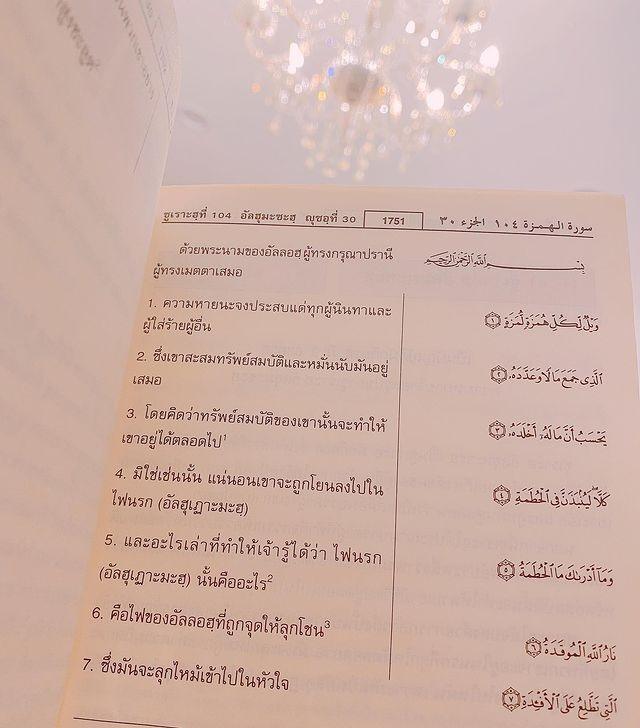 ซูเราะฮฺที่ 104 อัลฮุมะซะฮฺ ญุซอฺที่ 30
1751
سورة الهمزة ١٠٤ الجزء ٣٠
ด้วยพระนามของอัลลอฮผู้ทรงกรุณาปรานี
ผู้ทรงเมตตาเสมอ
بِسْمِ اللَّهِ الرَّحْمَٰنِ الرَّحِيمِ
1. ความหายนะจงประสบแด่ทุกผู้นินทาและ
ผู้ใส่ร้ายผู้อื่น
وَيْلٌ لِّكُلِّ هُمَزَةٍ لُّمَزَةٍ ١
2. ซึ่งเขาสะสมทรัพย์สมบัติและหมั่นนับมันอยู่
เสมอ
الَّذِى جَمَعَ مَالًا وَعَدَّدَهُۥ ٢
3. โดยคิดว่าทรัพย์สมบัติของเขานั้นจะทำให้
เขาอยู่ได้ตลอดไป1
يَحْسَبُ أَنَّ مَالَهُۥٓ أَخْلَدَهُۥ ٣
4. มิใช่เช่นนั้น แน่นอนเขาจะถูกโยนลงไปใน
ไฟนรก (อัลฮุเฏาะมะฮฺ)
كَلَّا ۖ لَيُنۢبَذَنَّ فِى الْحُطَمَةِ ٤
5. และอะไรเล่าที่ทำให้เจ้ารู้ได้ว่า ไฟนรก
(อัลฮุเฏาะมะฮฺ) นั้นคืออะไร2
وَمَآ أَدْرَىٰكَ مَا الْحُطَمَةُ ٥
6. คือไฟของอัลลอฮฺที่ถูกจุดให้ลุกโชน3
نَارُ اللَّهِ الْمُوقَدَةُ ٦
7. ซึ่งมันจะลุกไหม้เข้าไปในหัวใจ
الَّتِى تَطَّلِعُ عَلَى الْأَفْـِٔدَةِ ٧